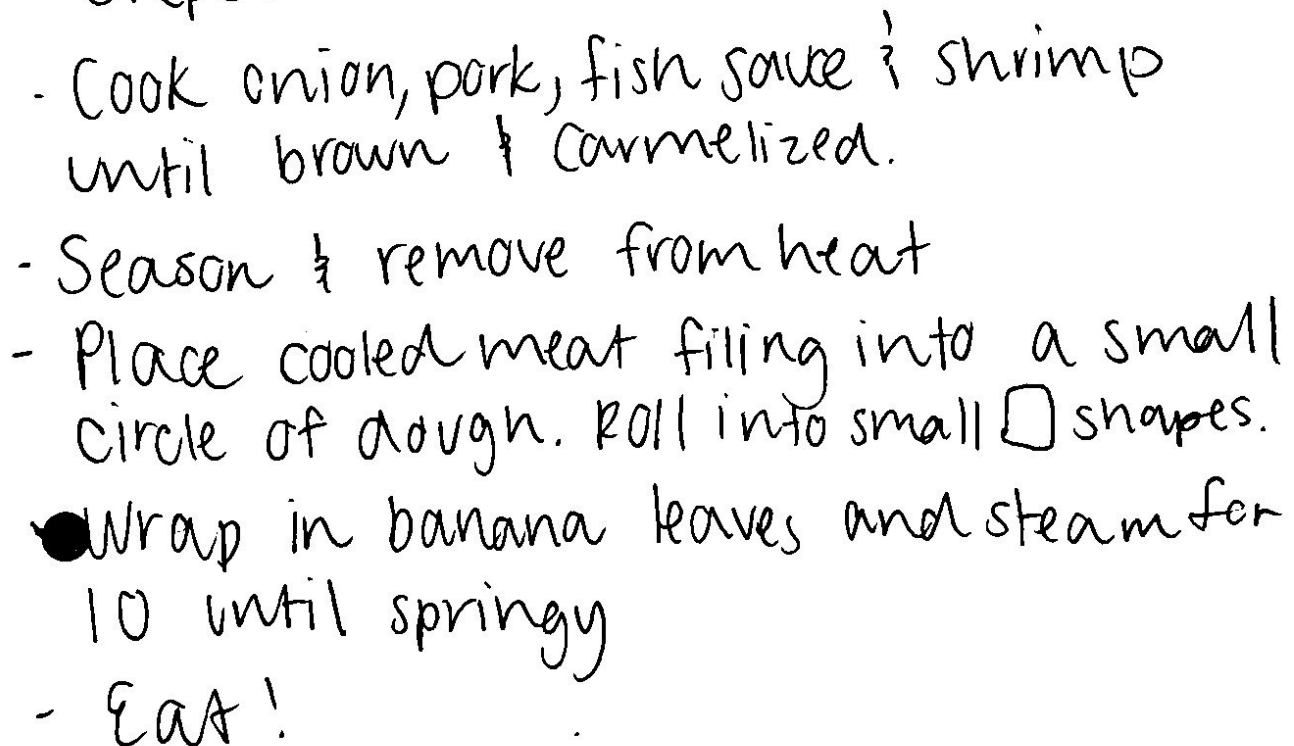 - Cook onion, pork, fish sauce & shrimp
until brown & carmelized.
- Season & remove from heat
- Place cooled meat filing into a small
circle of dough. Roll into small shapes.
Wrap in banana leaves and steam for
10 until springy
- Eat!